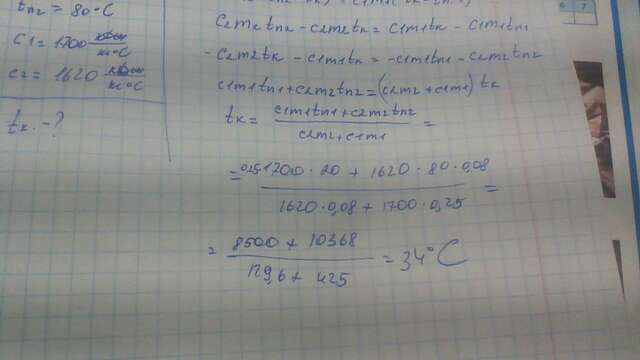 tп2 = 80°C
C1 = 1700 Дж/кг°C
C2 = 1620 Дж/кг°C
tк. - ?
C2m2tп2 - C2m2tк = C1m1tк - C1m1tп1
- C2m2tк - C1m1tк = -C1m1tп1 - C2m2tп2
C1m1tп1 + C2m2tп2 = (C2m2 + C1m1) tк
tк = (C1m1tп1 + C2m2tп2) / (C2m2 + C1m1) =
= (0,25·1700 · 20 + 1620 · 80 · 0,08) / (1620 · 0,08 + 1700 · 0,25) =
= (8500 + 10368) / (129,6 + 425) = 34°C
6 7